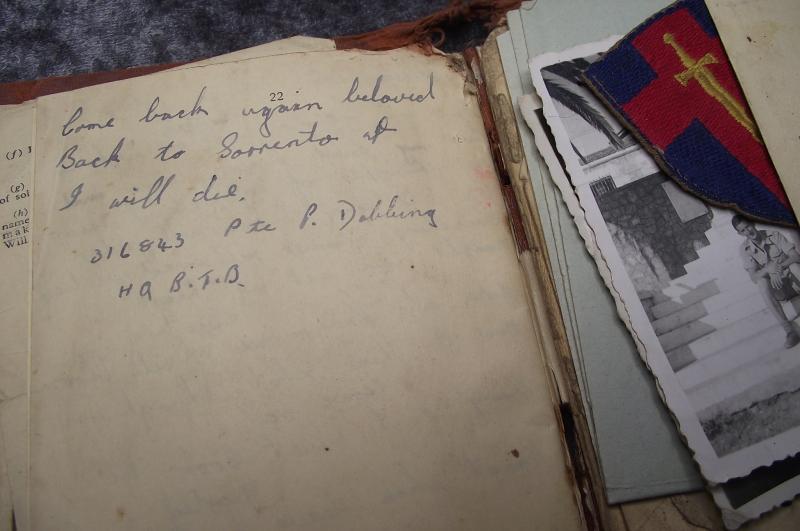 22
Come back again beloved
Back to Sorrento or
I will die.
316843 Pte P. Dobbing
HQ B.T.B.
(f)
(g)
of soi
(h)
name
mak
Will